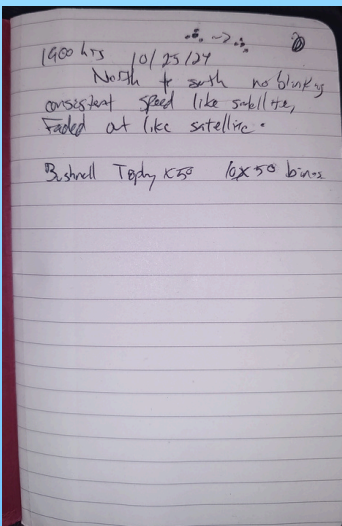 1900 hrs 10/25/24
North to south no blinking
consistent speed like satellite,
Faded out like satellite.
Bushnell Trophy x50 10x50 binos